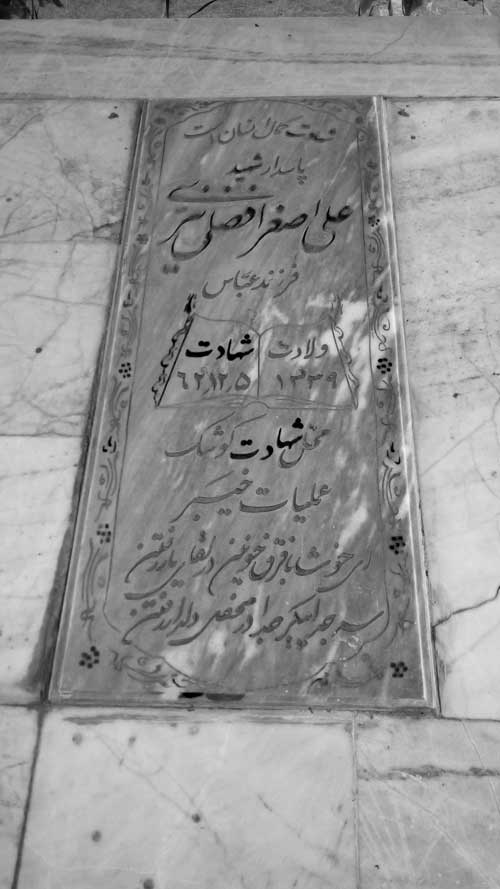 شهادت کمال انسان است
پاسدار شهید
علی اصغر افضلی یزدی
فرزند عباس
ولادت شهادت
۱۳۳۹ ۶۲٫۱۲٫۵
محل شهادت کوشک
عملیات خیبر
ای خوشا با فرق خونین در لقای یار رفتن
سر جدا پیکر جدا در محفل دلدار رفتن